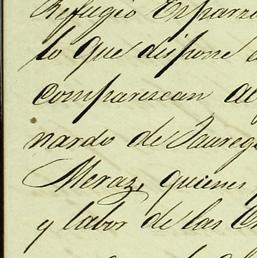 Refugio Esparz
lo que dispone
comparezcan a
nardo de Jaureg
Meraz, quienes
y labor de las